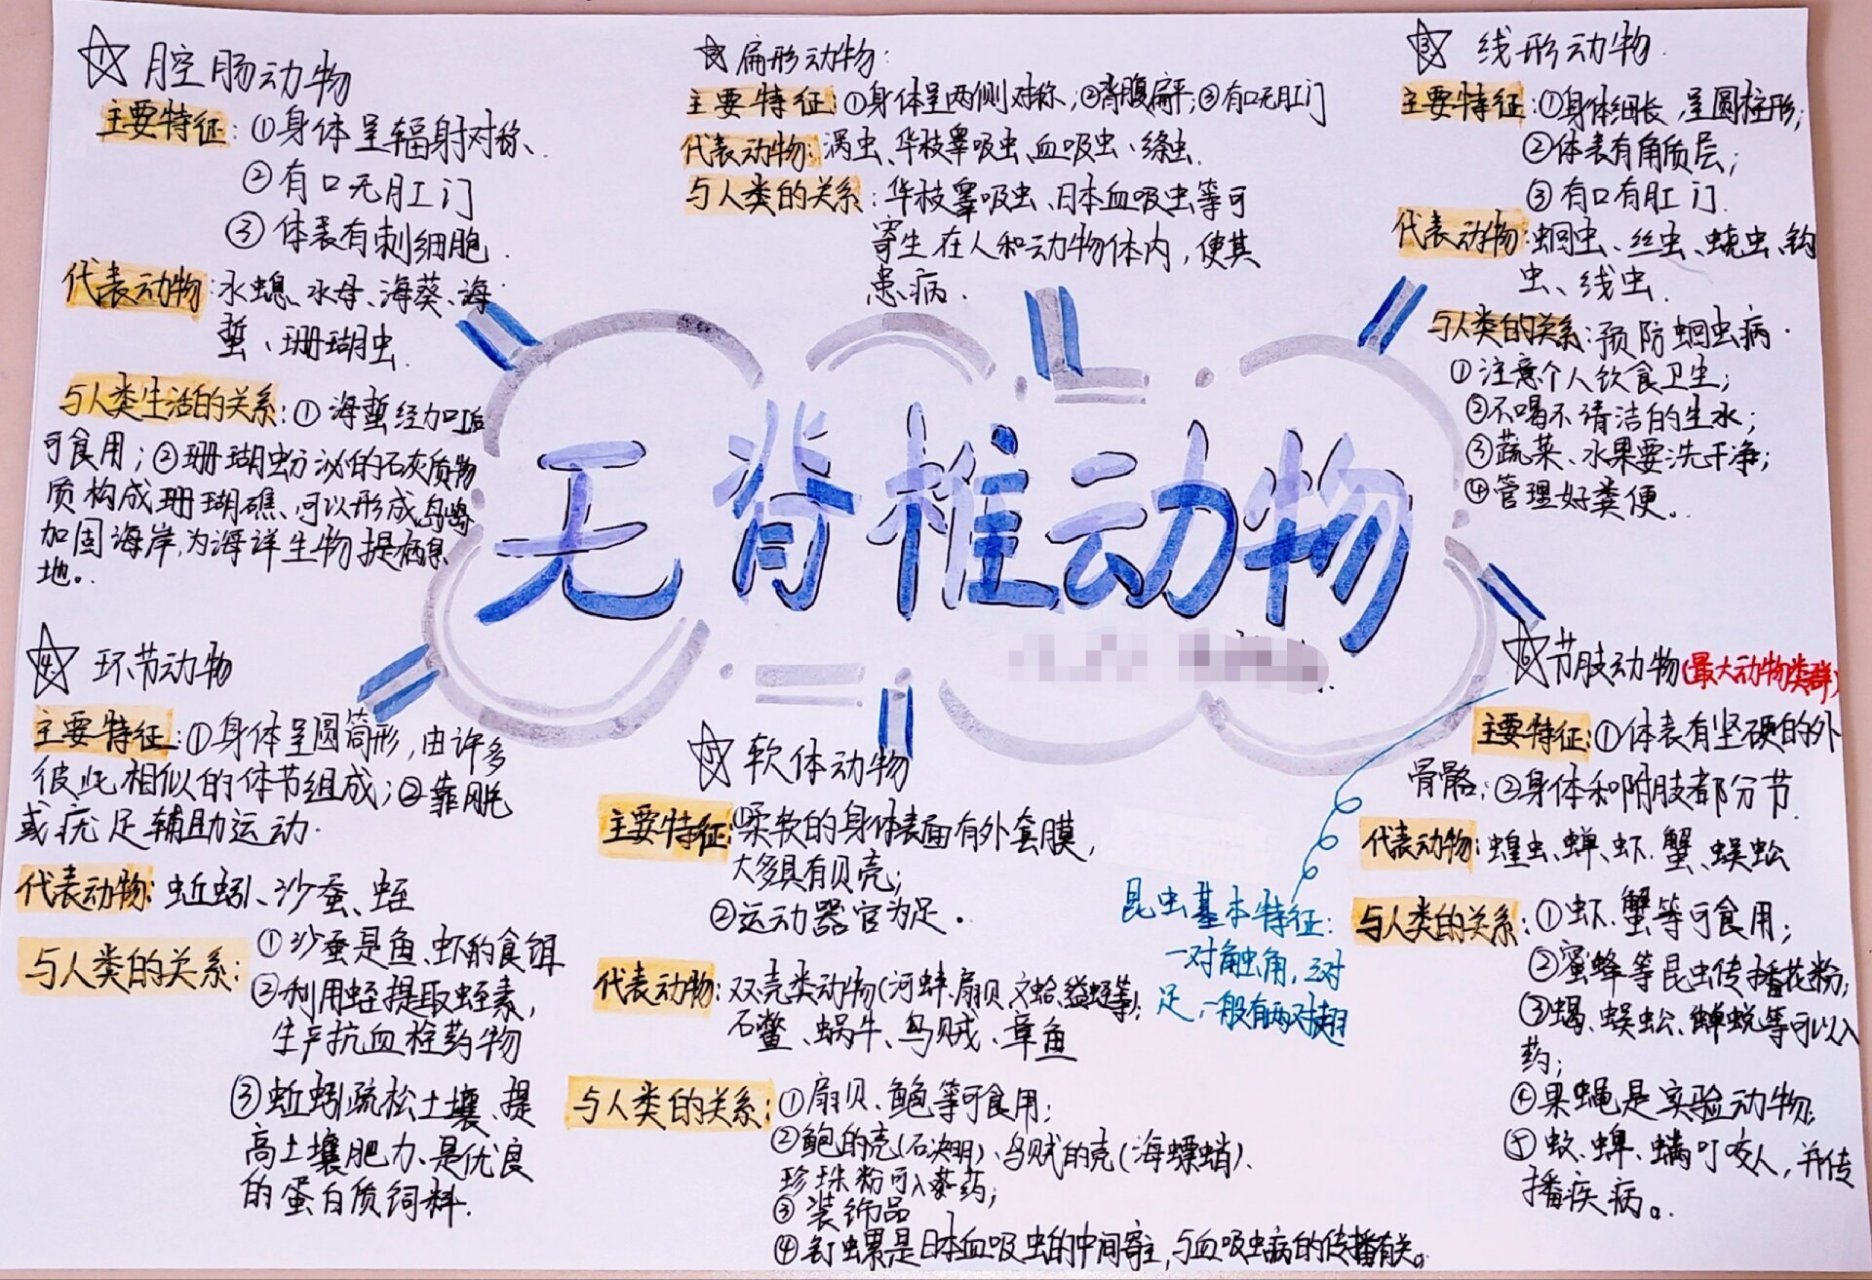 无脊椎动物
1 腔肠动物
主要特征:①身体呈辐射对称、
②有口无肛门
③体表有刺细胞.
代表动物:水螅、水母、海葵、海
蜇、珊瑚虫.
与人类生活的关系:①海蜇经加工后
可食用;②珊瑚虫分泌的石灰质物
质构成珊瑚礁、可以形成岛屿
加固海岸,为海洋生物提栖息
地。
2 扁形动物:
主要特征:①身体呈两侧对称;②背腹扁平;③有口无肛门
代表动物:涡虫、华枝睾吸虫、血吸虫、绦虫.
与人类的关系:华枝睾吸虫、日本血吸虫等可
寄生在人和动物体内,使其
患病.
3 线形动物.
主要特征:①身体细长,呈圆柱形;
②体表有角质层;
③有口有肛门.
代表动物:蛔虫、丝虫、蛲虫、钩
虫、线虫.
与人类的关系:预防蛔虫病.
①注意个人饮食卫生;
②不喝不清洁的生水;
③蔬菜、水果要洗干净;
④管理好粪便。
4 环节动物
主要特征:①身体呈圆筒形,由许多
彼此相似的体节组成;②靠刚毛
或疣足辅助运动.
代表动物:蚯蚓、沙蚕、蛭
与人类的关系:①沙蚕是鱼、虾的食饵
②利用蛭提取蛭素,
生产抗血栓药物
③蚯蚓疏松土壤、提
高土壤肥力、是优良
的蛋白质饲料.
5 软体动物
主要特征:①柔软的身体表面有外套膜,
大多具有贝壳;
②运动器官为足。
代表动物:双壳类动物(河蚌、扇贝、文蛤、缢蛏等);
石鳖、蜗牛、乌贼、章鱼
与人类的关系:①扇贝、鲍等可食用;
②鲍的壳(石决明)、乌贼的壳(海螵蛸)、
珍珠粉可入药;
③装饰品
④钉螺是日本血吸虫的中间寄主,与血吸虫病的传播有关。
6 节肢动物(最大动物类群)
主要特征:①体表有坚硬的外
骨骼;②身体和附肢都分节.
代表动物:蝗虫、蝉、虾、蟹、蜈蚣
与人类的关系:①虾、蟹等可食用;
②蜜蜂等昆虫传播花粉;
③蝎、蜈蚣、蝉蜕等可以入
药;
④果蝇是实验动物;
⑤蚊、蜱、螨叮咬人,并传
播疾病。
昆虫基本特征:
一对触角,三对
足,一般有两对翅